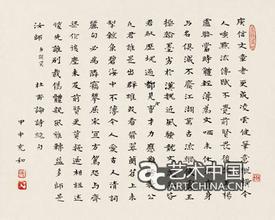 庾信文章老更成凌雲健筆意縱橫今
人嗤點流傳賦不覺前賢畏後生王楊
盧駱當時體輕薄為文哂未休爾曹身
與名俱滅不廢江河萬古流縱使盧王
操翰墨劣於漢魏近風騷龍文虎脊皆
君馭歷塊過都見爾曹才力應難跨數公
凡今誰是出群雄或看翡翠蘭苕上未
掣鯨魚碧海中不薄今人愛古人清詞
麗句必為鄰竊攀屈宋宜方駕恐與齊
梁作後塵未及前賢更勿疑遞相祖述
復先誰別裁偽體親風雅轉益多師是
汝師 杜甫論詩絕句
甲申充和
艺术中国